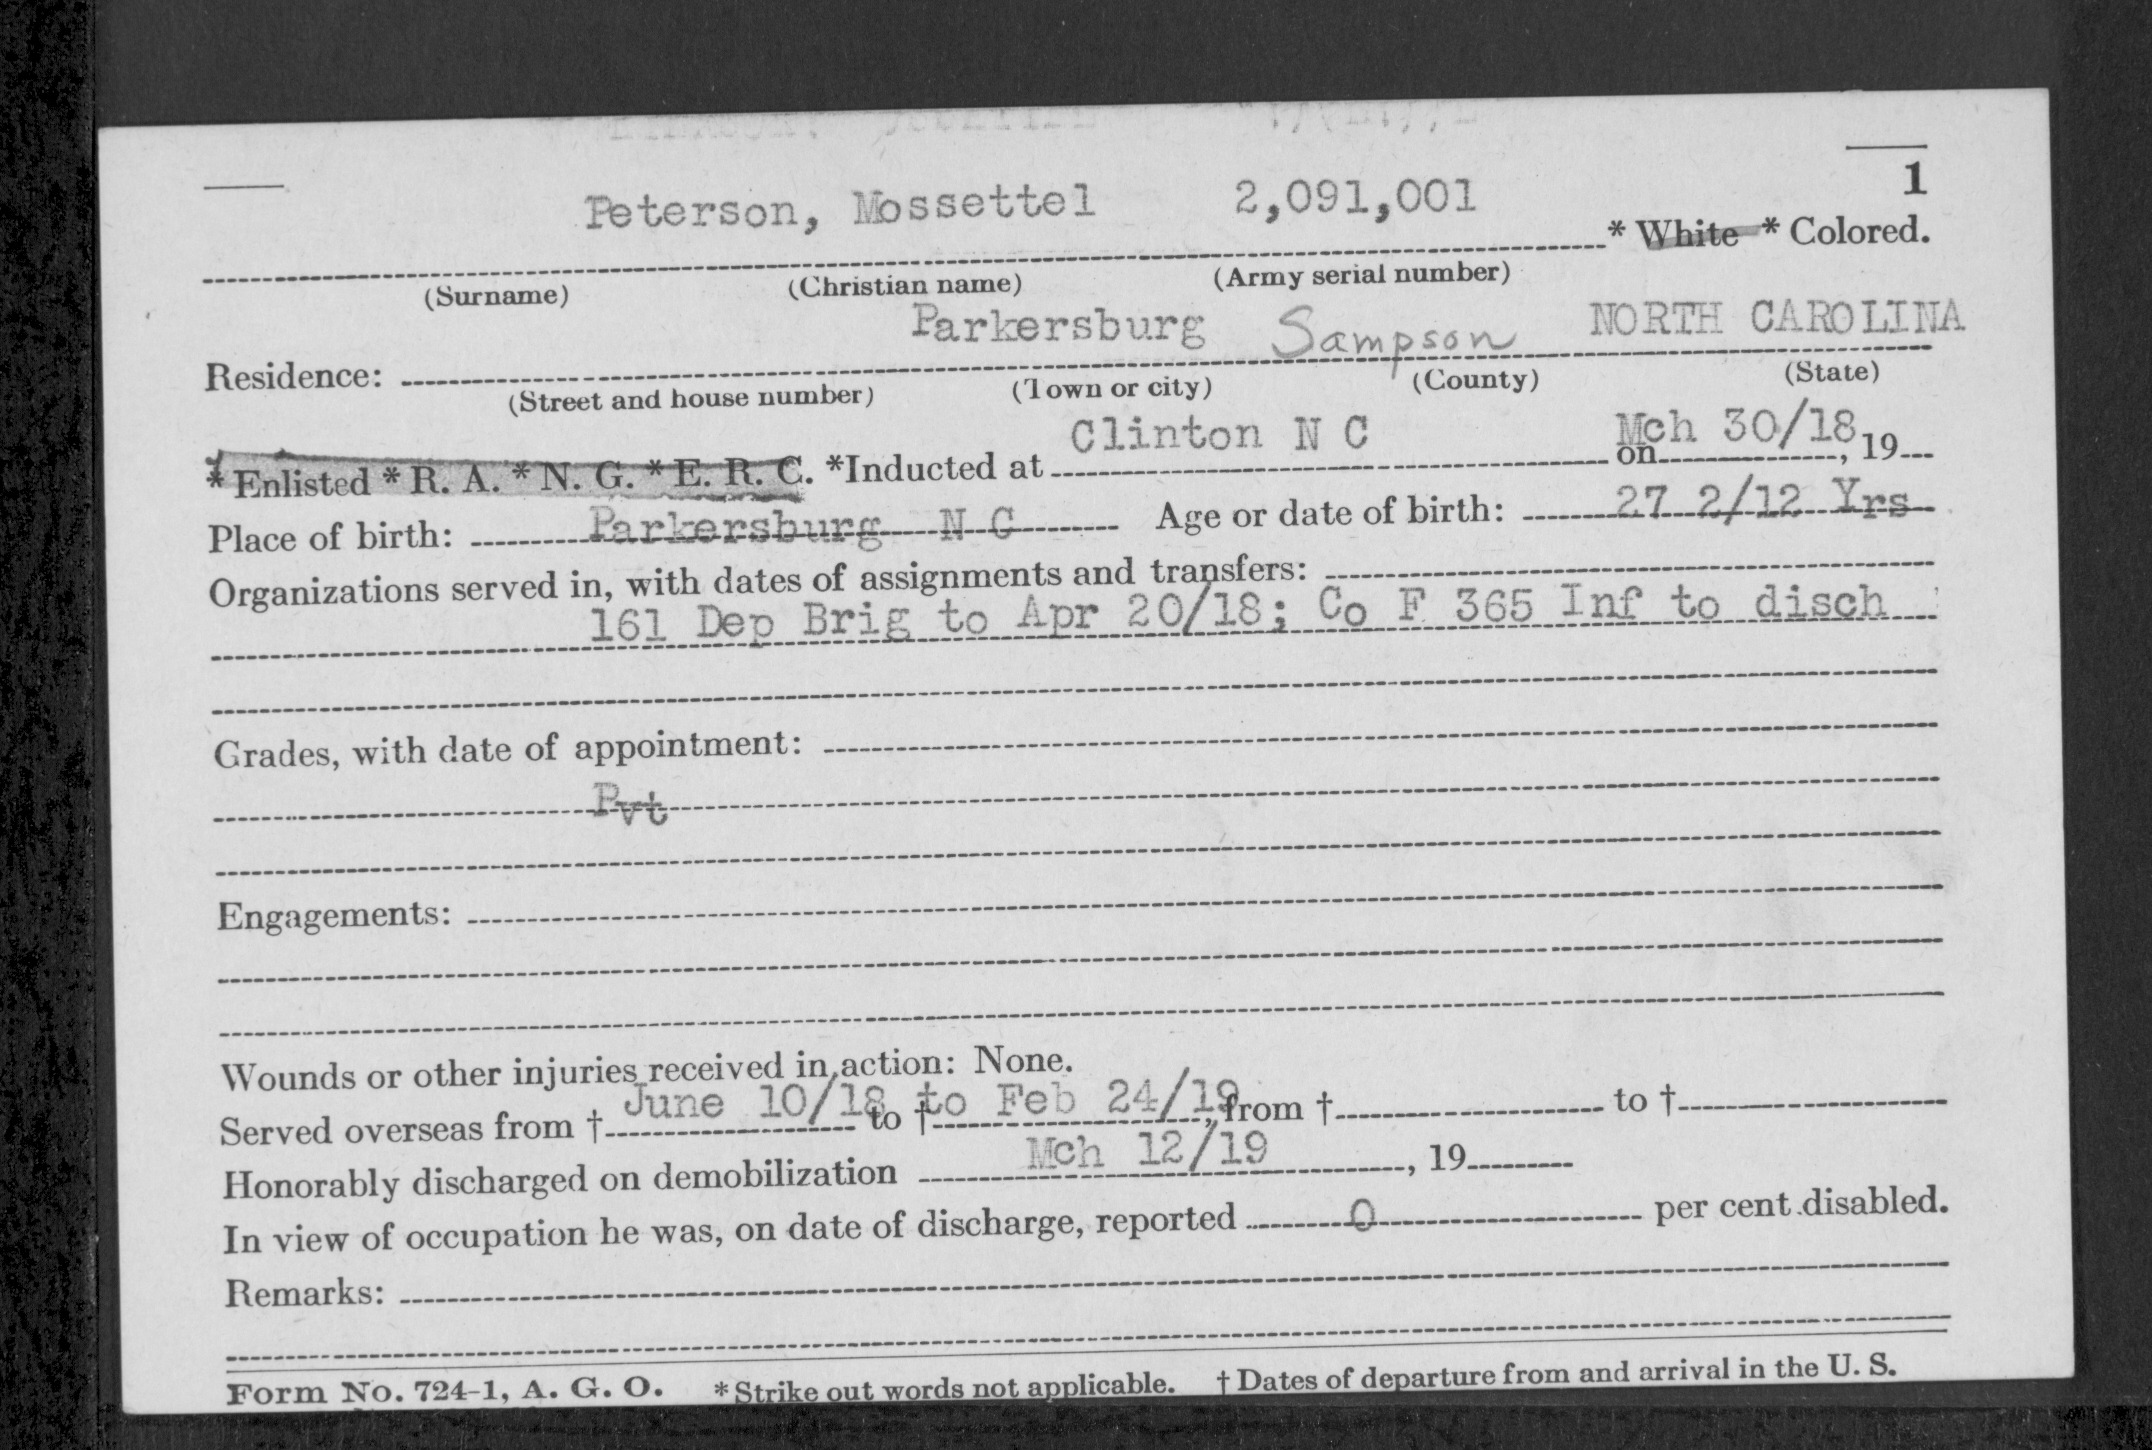 1
Peterson, Mossettel 2,091,001 * White * Colored.
(Surname) (Christian name) (Army serial number)
Parkersburg Sampson NORTH CAROLINA
Residence:
(Street and house number) (Town or city) (County) (State)
Clinton N C Mch 30/18
* Enlisted * R. A. * N. G. * E. R. C. *Inducted at on , 19
Place of birth: Parkersburg N C Age or date of birth: 27 2/12 Yrs
Organizations served in, with dates of assignments and transfers:
161 Dep Brig to Apr 20/18; Co F 365 Inf to disch
Grades, with date of appointment:
Pvt
Engagements:
Wounds or other injuries received in action: None.
Served overseas from † June 10/18 to † to Feb 24/19, from † to †
Honorably discharged on demobilization Mch 12/19 , 19
In view of occupation he was, on date of discharge, reported 0 per cent disabled.
Remarks:
Form No. 724-1, A. G. O. * Strike out words not applicable. † Dates of departure from and arrival in the U. S.